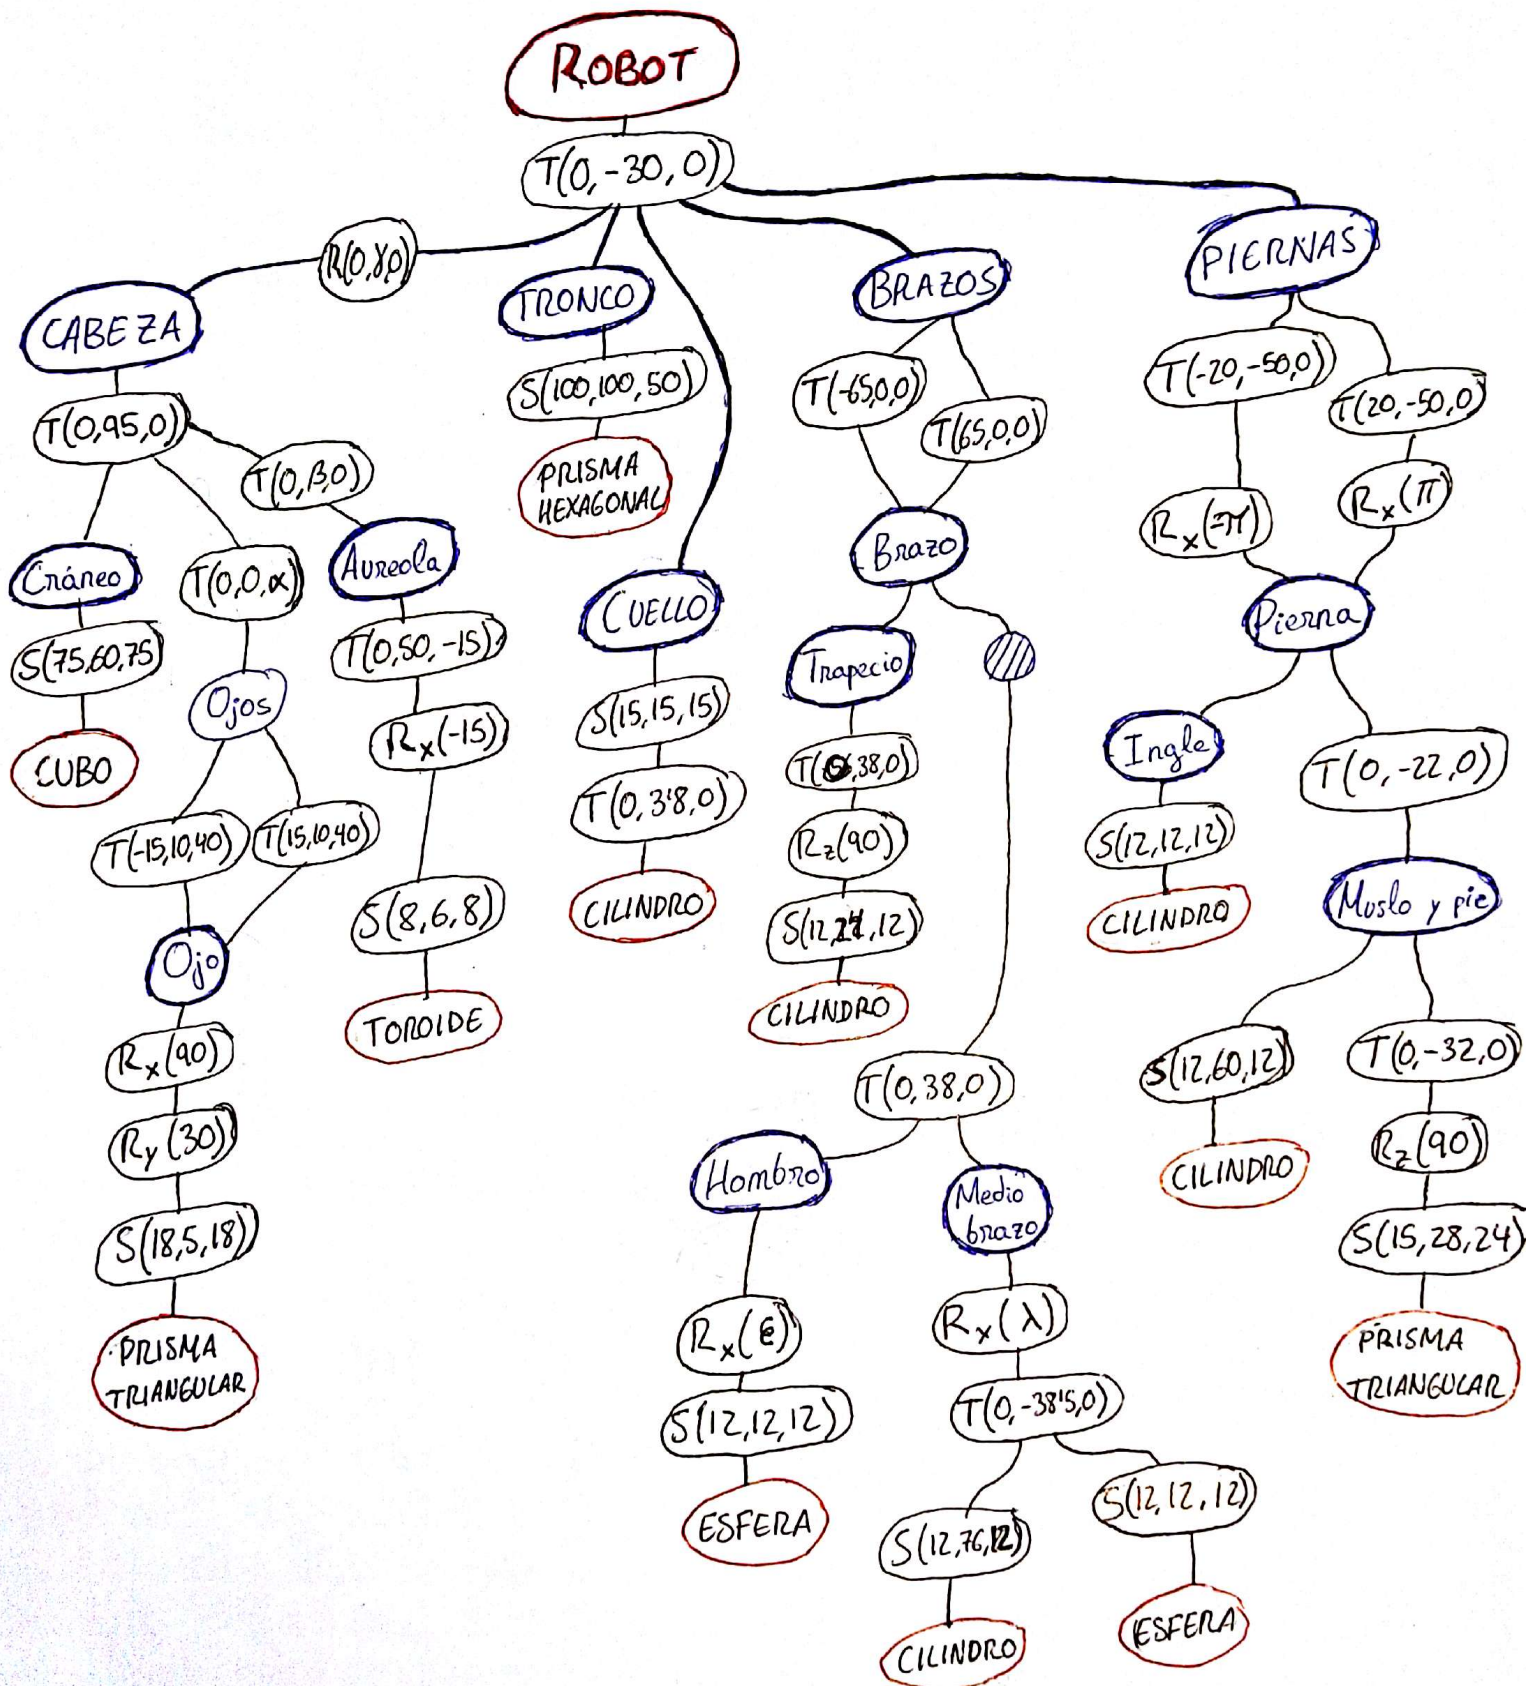 ROBOT
T(0,-30,0)
R(0,γ,0)
CABEZA
T(0,95,0)
T(0,β,0)
Cráneo
S(75,60,75)
CUBO
T(0,0,α)
Ojos
T(-15,10,40)
T(15,10,40)
Ojo
Rx(90)
Ry(30)
S(18,5,18)
PRISMA
TRIANGULAR
Aureola
T(0,50,-15)
Rx(-15)
S(8,6,8)
TOROIDE
TRONCO
S(100,100,50)
PRISMA
HEXAGONAL
CUELLO
S(15,15,15)
T(0,3'8,0)
CILINDRO
BRAZOS
T(-65,0,0)
T(65,0,0)
Brazo
Trapecio
T(0,38,0)
Rz(90)
S(12,24,12)
CILINDRO
T(0,38,0)
Hombro
Rx(ε)
S(12,12,12)
ESFERA
Medio
brazo
Rx(λ)
T(0,-38'5,0)
S(12,76,12)
CILINDRO
S(12,12,12)
ESFERA
PIERNAS
T(-20,-50,0)
T(20,-50,0)
Rx(-π)
Rx(π)
Pierna
Ingle
S(12,12,12)
CILINDRO
T(0,-22,0)
Muslo y pie
S(12,60,12)
CILINDRO
T(0,-32,0)
Rz(90)
S(15,28,24)
PRISMA
TRIANGULAR